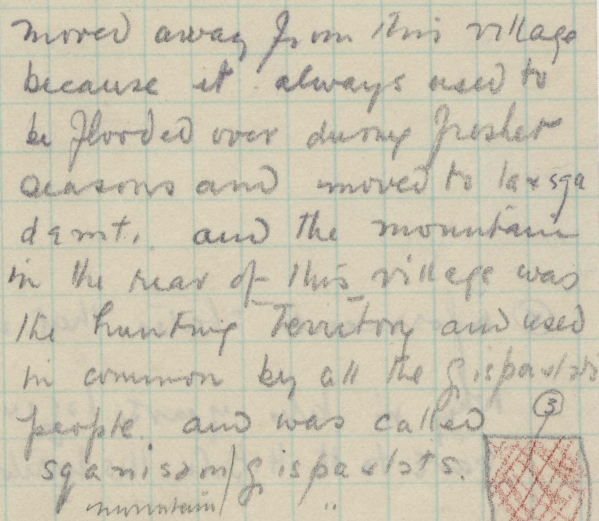 moved away from this village
because it always used to
be flooded over during freshet
seasons and moved to laxsga
dəmt. and the mountain
in the rear of this village was
the hunting Territory and used
in common by all the gispaxlɔts
people. and was called
sganisɔm/gispaxlɔts.
mountain/ "
3